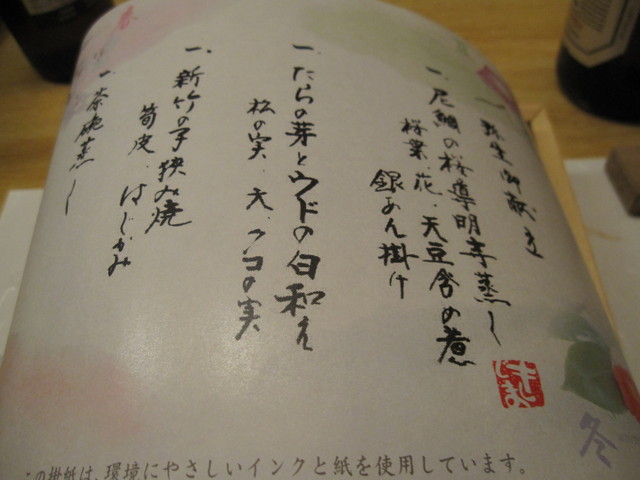 弥生御献立
一、尼鯛の桜導明寺蒸し
桜葉・花・天豆含め煮
銀あん掛け
一、たらの芽とウドの白和え
松の実・クコの実
一、新竹の子挟み焼
筍皮・はじかみ
一、茶碗蒸し
春
冬
この掛紙は、環境にやさしいインクと紙を使用しています。